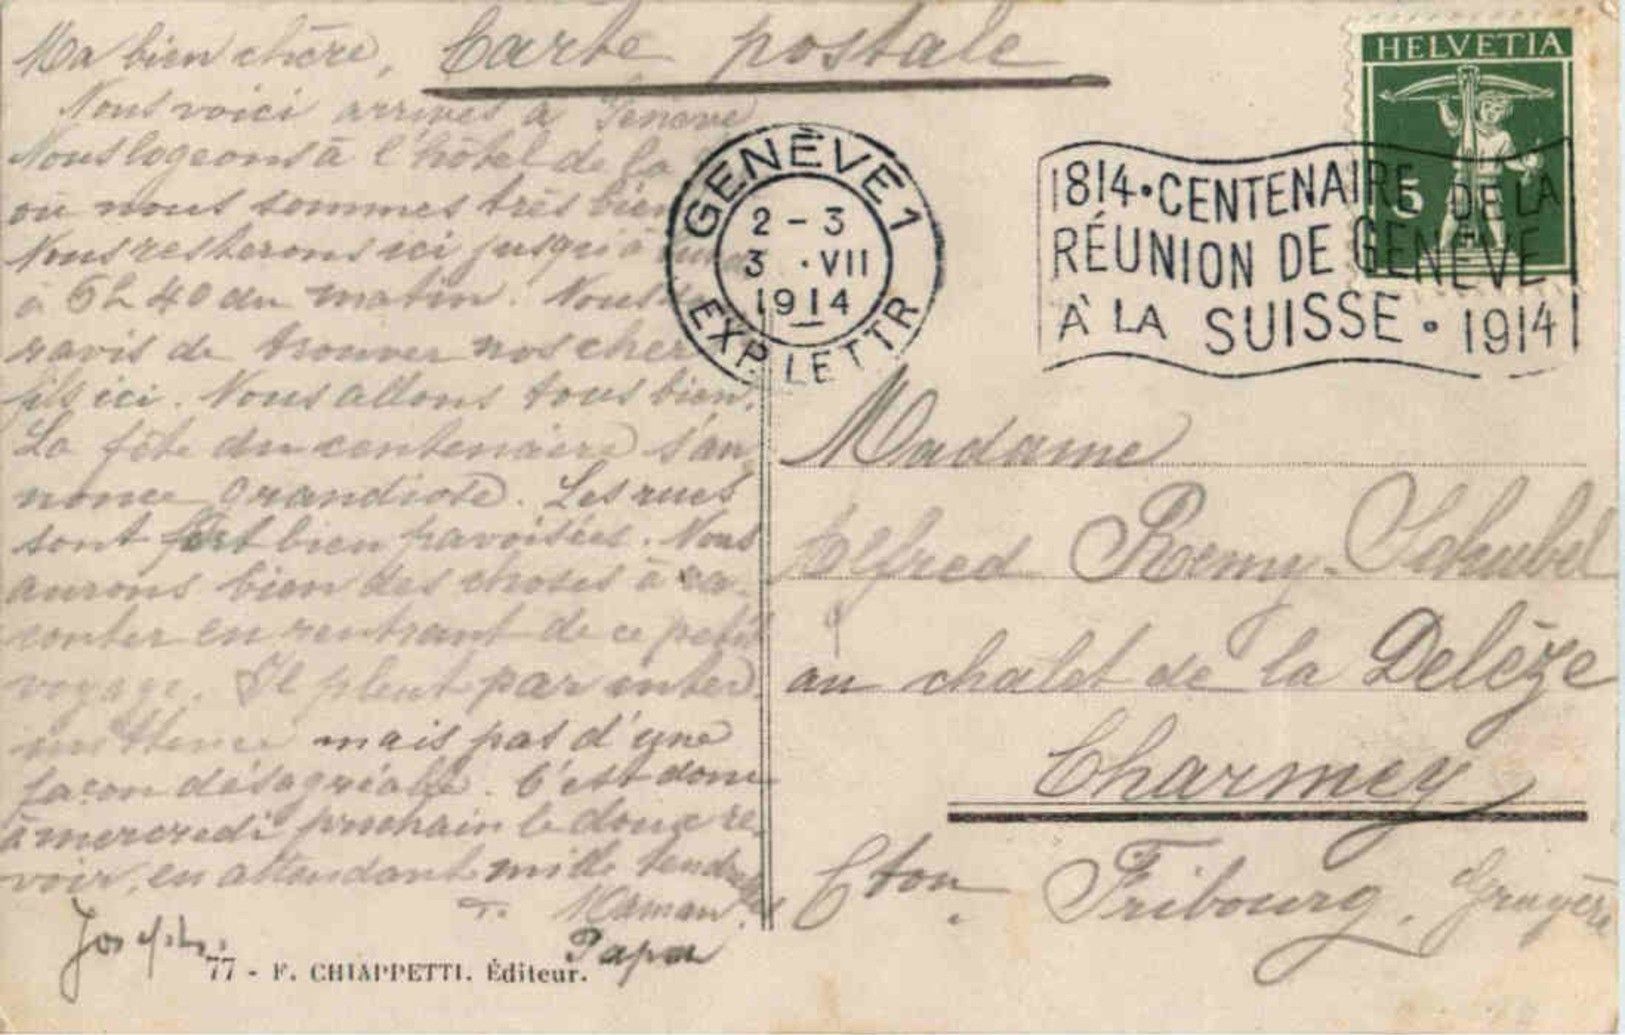 Carte postale
Ma bien chère,
Nous voici arrivés à Genève
Nous logeons à l'hôtel de la
où nous sommes très bien
Nous resterons ici jusqu'à
à 6h 40 du matin. Nous
ravis de trouver nos cher
fils ici. Nous allons tous bien.
La fête du centenaire s'an
nonce grandiose. Les rues
sont fort bien pavoisées. Nous
aurons bien des choses à ra-
conter en rentrant de ce petit
voyage. Il pleut par inter
mittence mais pas d'une
façon désagréable. C'est donc
à mercredi prochain le doux re-
voir, en attendant mille tendresses
Maman.
Papa
Joseph.
77 - F. CHIAPPETTI. Éditeur.
GENÈVE 1
2 - 3
3 ·VII
1914
EXP. LETTR
1814·CENTENAIRE DE LA
RÉUNION DE GENÈVE
À LA SUISSE · 1914
HELVETIA
5
Madame
Alfred Remy-Schubel
au chalet de la Delèze
Charmey
Cton. Fribourg. Gruyère